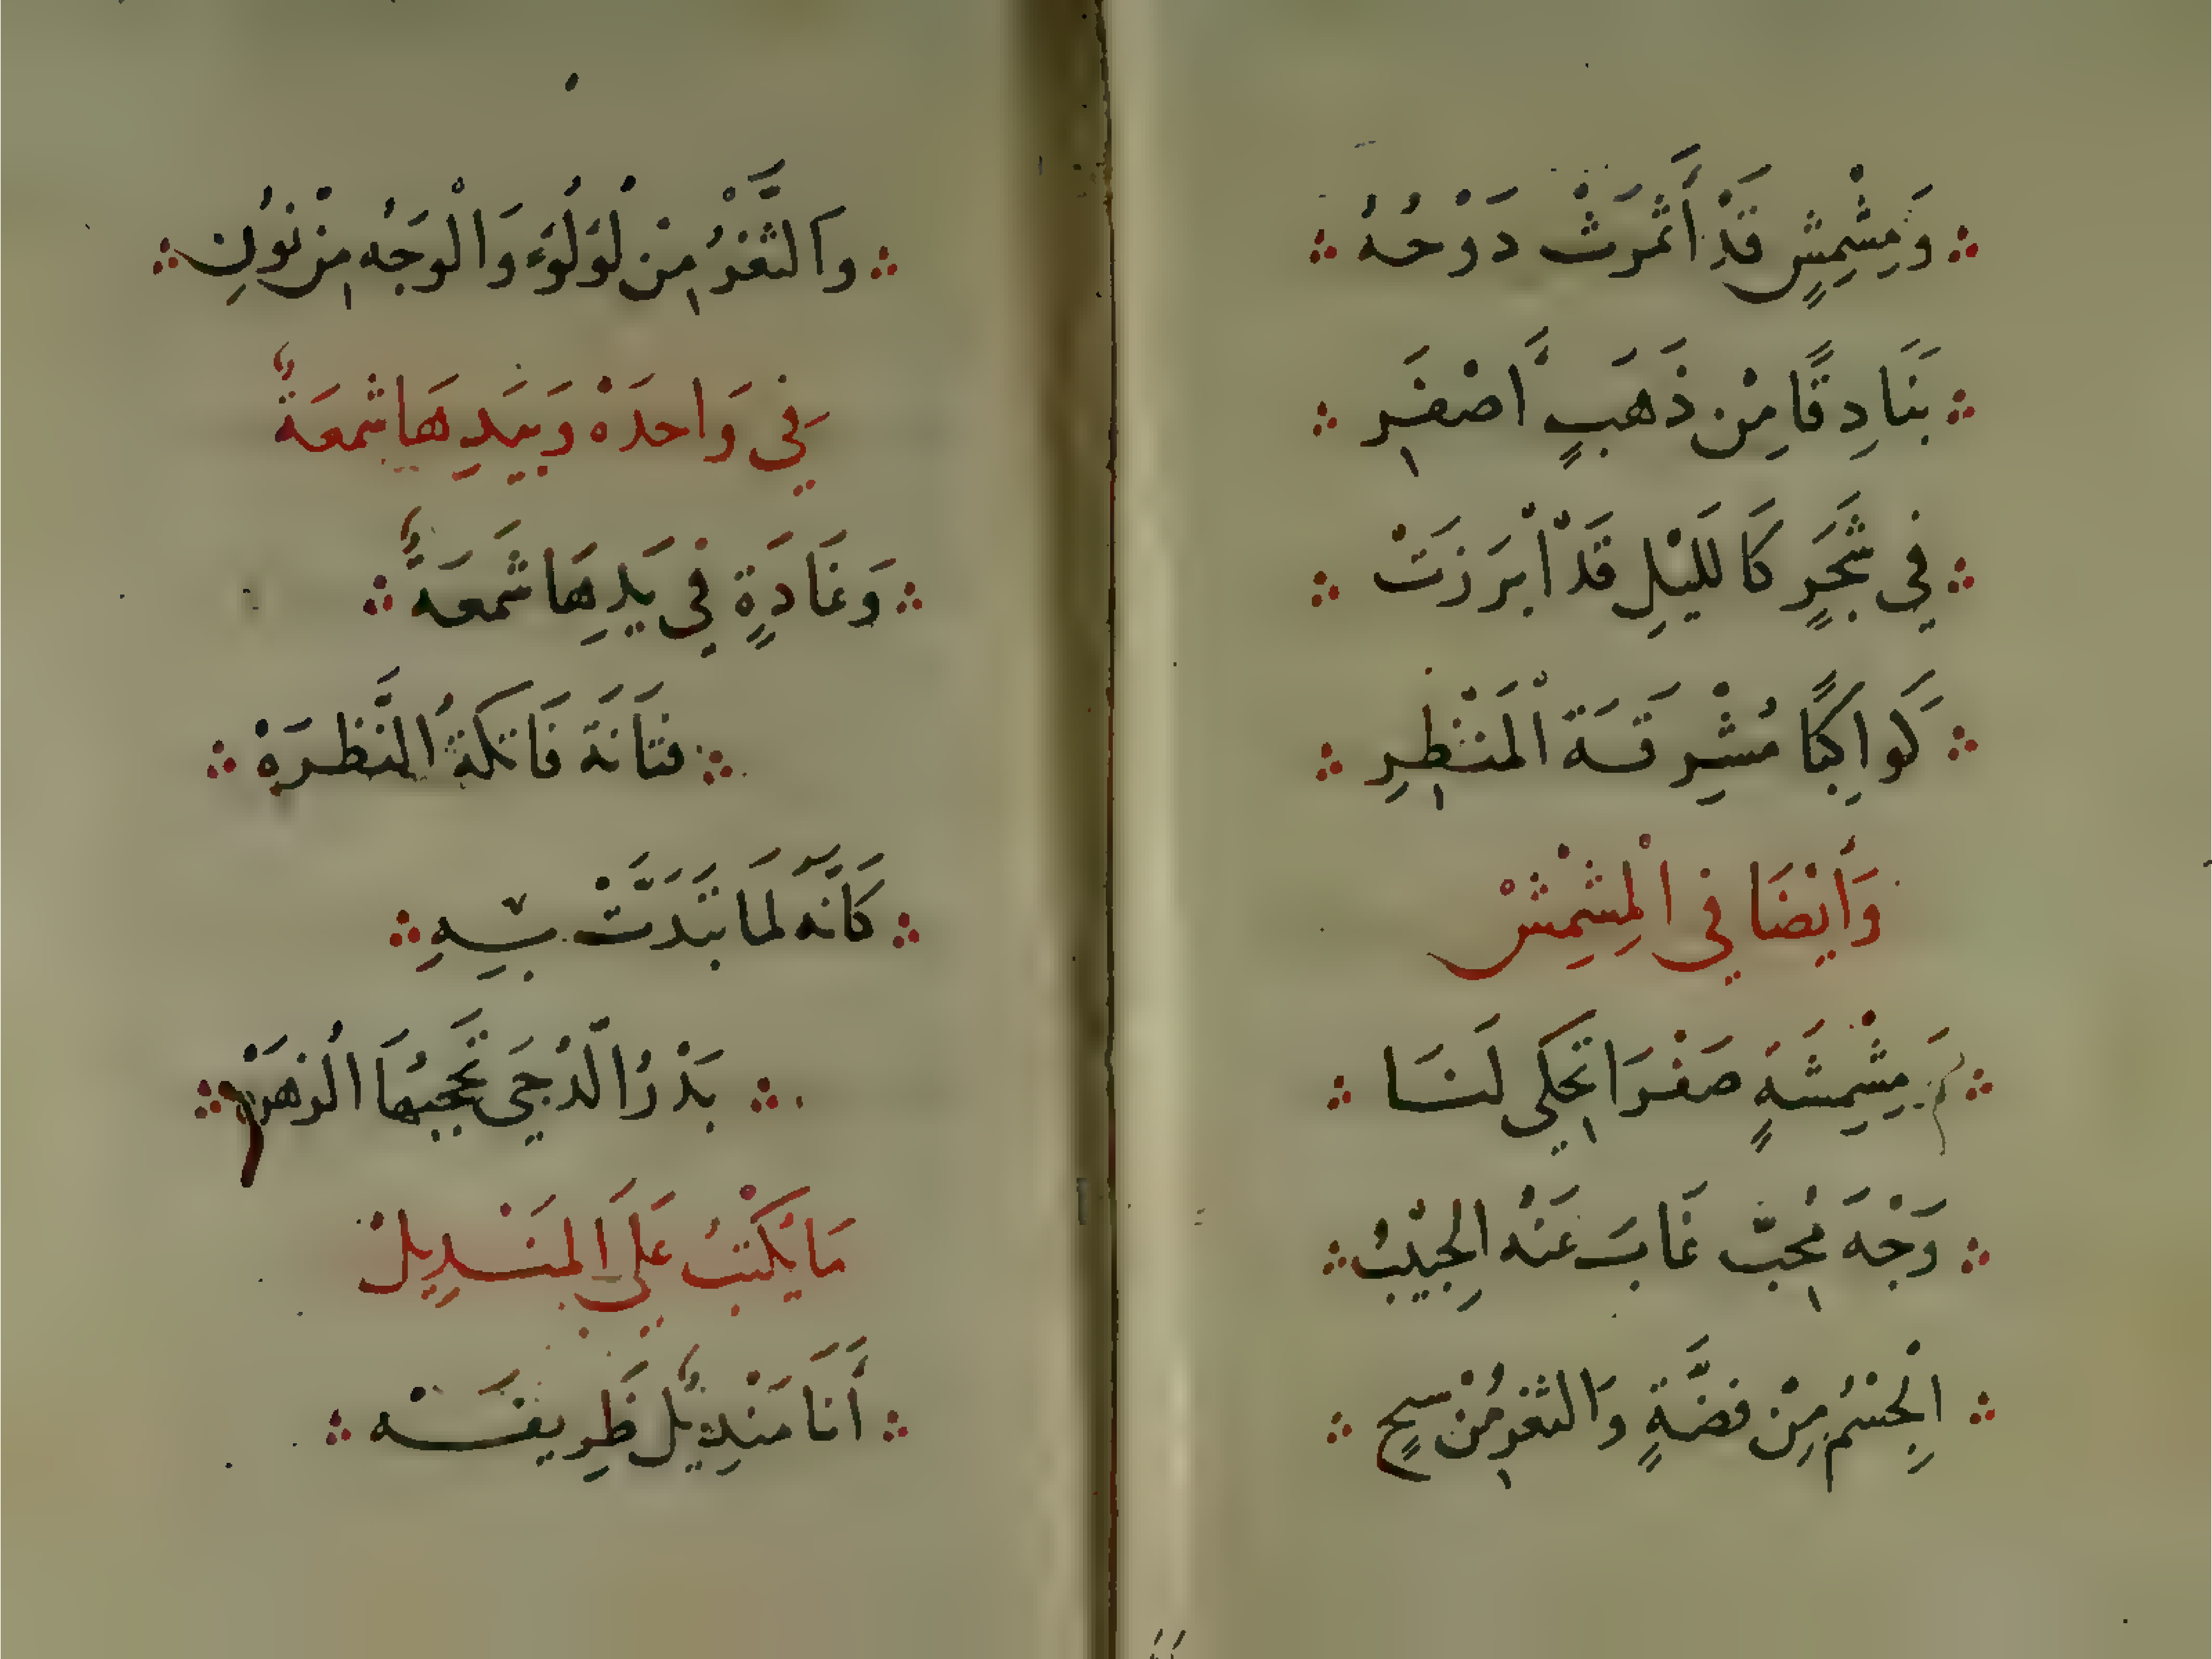 وَمِشْمِشٍ قَدْ أَثْمَرَتْ دَوْحُهُ
بَنَادِقًا مِنْ ذَهَبٍ أَصْفَرِ
فِي شَجَرٍ كَاللَيْلِ قَدْ أَبْرَزَتْ
كَوَاكِبًا مُشْرِقَةَ الْمَنْظَرِ
وَأَيْضَا فِي الْمِشْمِشْ
مِشْمِشَةٍ صَفْرَا تَحْكِي لَنَا
وَجْهَ مُحِبٍّ غَابَ عَنْهُ الْحَبِيْبُ
الْجِسْمُ مِنْ فِضَّةٍ وَالثَغْرُ مِنْ سبحٍ
وَالثَّغْرُ مِنْ لُؤْلُوءٍ وَالْوَجْهُ مِنْ نُورِ
فِي وَاحدَهْ وَبِيَدِهَا شَمعَةٌ
وَغَادَةٍ فِي يَدِهَا شَمعَةٌ
فتَانَةَ فَاتِكَةُ النَّظرَهْ
كَأَنَّهَ لَمَا تَبَدَّتْ بِهِ
بَدْرُ الدُجَى تَحجبُهَا الزهَرَهْ
مَا يُكْتَبُ عَلَى الْمَنْدِيلْ
أَنَا مَنْدِيلٌ ظَرِيفَهْ